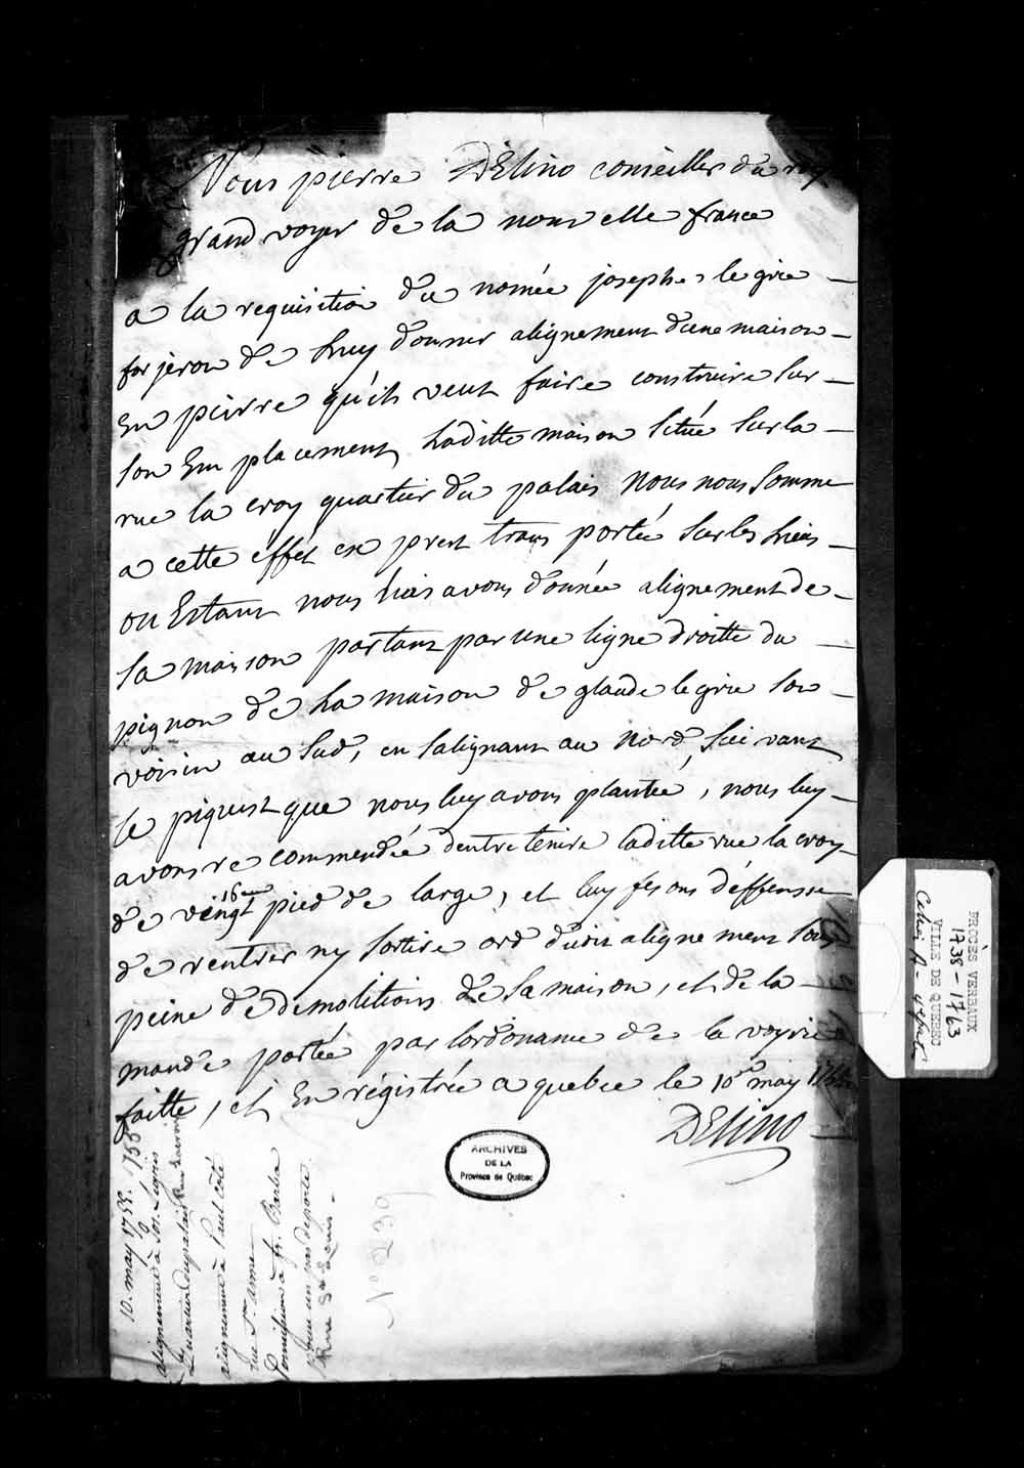 Nous pierre DElino conseiller du roy
grand voyer de la nouvelle france
a la requisition du nomée joseph legrie
forjeron de luy donner alignement dune maison
En pierre qu'il veut faire construire sur
son Emplacement, laditte maison située sur la
rue la croy quartier du palais Nous nous somme
a cette effet exprest transportée sur les lieux
ou Estant nous luis avons donnée alignement de
sa maison partant par une ligne droitte du
pignon de la maison de glaude legrie son
voisin au sud, en salignant au nord, suivant
le piquest que nous luy avons plantée, nous luy
avons recommendée dentretenire laditte rue la croy
16 eun
de vingt pied de large, et luy fesons déffensse
de rentrer ny sortire ord dudit alignement sous
peine de demolitions de sa maison, et de la
mande portée par lordonance de la voyrie
faitte, et En régistrée a quebec le 10me may 1755
DElino
10. may 1755. 1755
alignement à Jos. Legris
Quartier du palais Rue Lacroix
alignement à Paul Coté
rue Ste Anne
Permission à fr. Barba
pour un pas de porte
Rue St Louis
No 239
ARCHIVES
DE LA
Province de Québec
PROCÈS VERBAUX
1738 - 1763
VILLE DE QUEBEC
Cahier A -